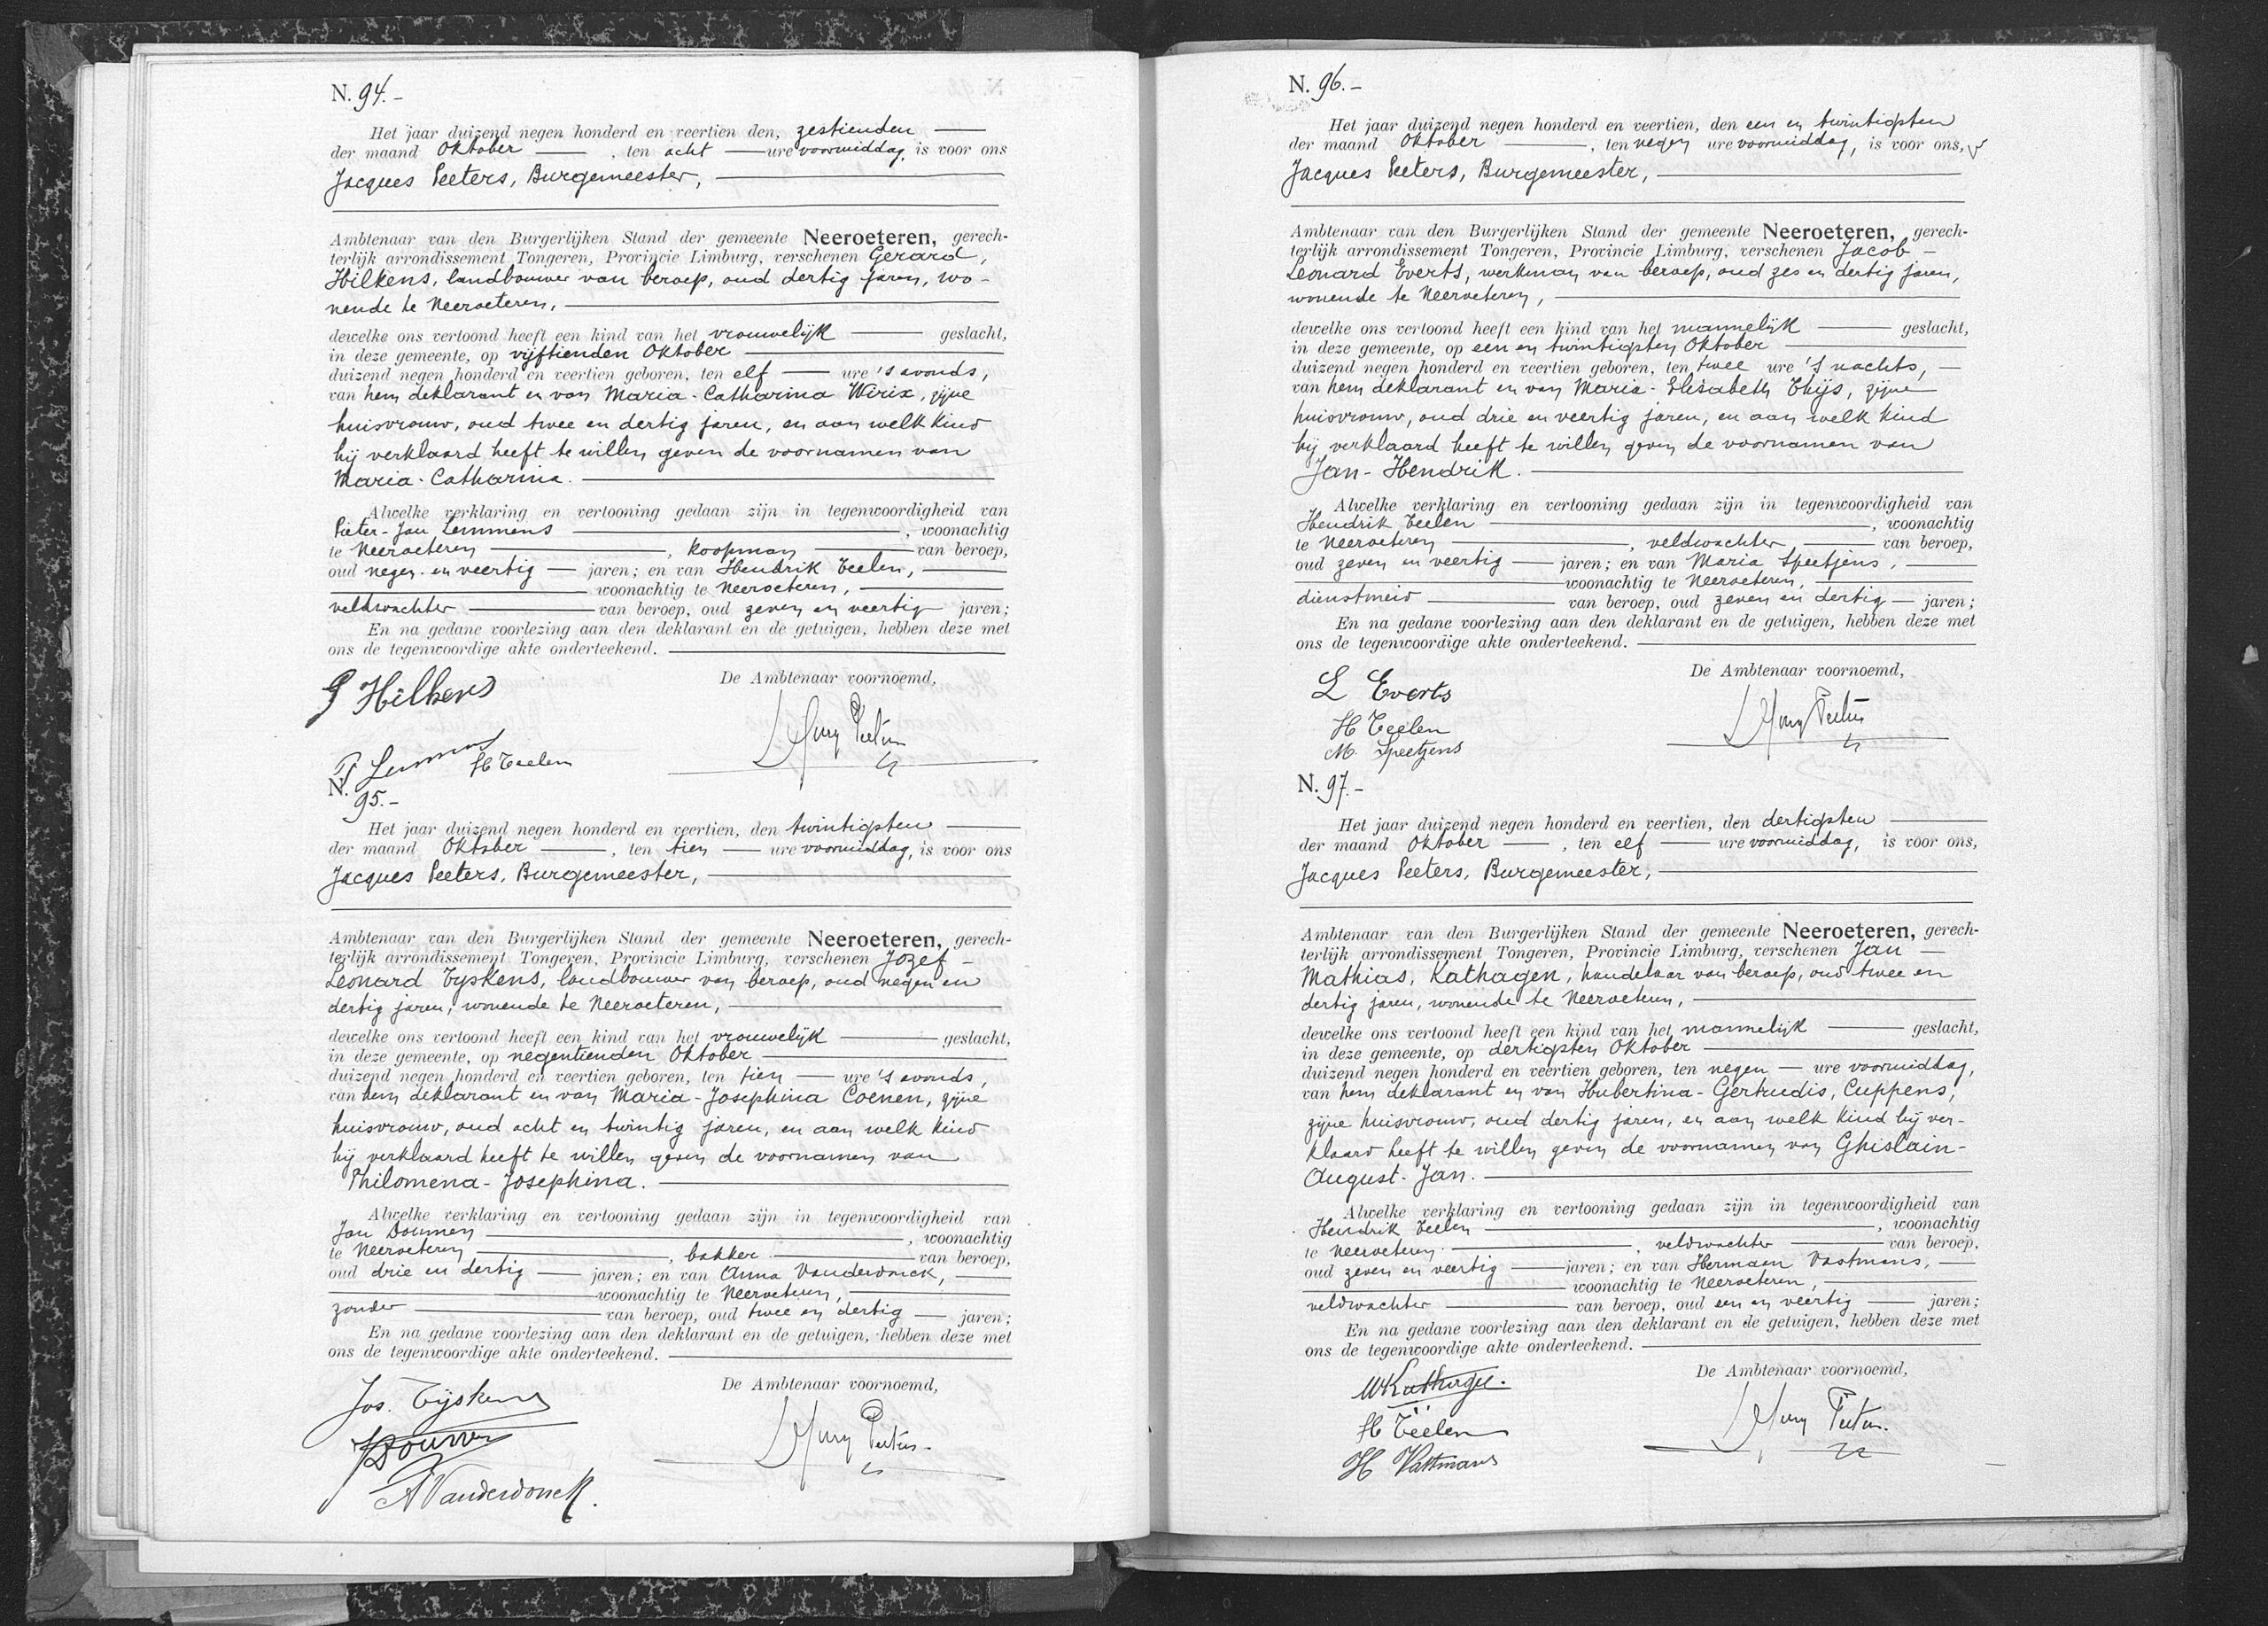 N. 94.-
Het jaar duizend negen honderd en veertien den, zestienden
der maand Oktober, ten acht ure voormiddag, is voor ons
Jacques Peeters, Burgemeester,
Ambtenaar van den Burgerlijken Stand der gemeente Neeroeteren, gerech-
terlijk arrondissement Tongeren, Provincie Limburg, verschenen Gerard,
Hilkens, landbouwer van beroep, oud dertig jaren, wo-
nende te Neeroeteren,
dewelke ons vertoond heeft een kind van het vrouwelijk geslacht,
in deze gemeente, op vijftienden Oktober
duizend negen honderd en veertien geboren, ten elf ure 's avonds,
van hem deklarant en van Maria-Catharina Wirix, zijne
huisvrouw, oud twee en dertig jaren, en aan welk kind
hij verklaard heeft te willen geven de voornamen van
Maria-Catharina.
Alwelke verklaring en vertooning gedaan zijn in tegenwoordigheid van
Pieter-Jan Lemmens, woonachtig
te Neeroeteren, koopman van beroep,
oud negen en veertig jaren; en van Hendrik Teelen,
woonachtig te Neeroeteren,
veldwachter van beroep, oud zeven en veertig jaren;
En na gedane voorlezing aan den deklarant en de getuigen, hebben deze met
ons de tegenwoordige akte onderteekend.
De Ambtenaar voornoemd,
G Hilkens
H Teelen
N. 95.-
Het jaar duizend negen honderd en veertien, den twintigsten
der maand Oktober, ten tien ure voormiddag, is voor ons
Jacques Peeters, Burgemeester,
Ambtenaar van den Burgerlijken Stand der gemeente Neeroeteren, gerech-
terlijk arrondissement Tongeren, Provincie Limburg, verschenen Jozef-
Leonard Tyskens, landbouwer van beroep, oud negen en
dertig jaren, wonende te Neeroeteren,
dewelke ons vertoond heeft een kind van het vrouwelijk geslacht,
in deze gemeente, op negentienden Oktober
duizend negen honderd en veertien geboren, ten tien ure 's avonds,
van hem deklarant en van Maria-Josephina Coenen, zijne
huisvrouw, oud acht en twintig jaren, en aan welk kind
hij verklaard heeft te willen geven de voornamen van
Philomena-Josephina.
Alwelke verklaring en vertooning gedaan zijn in tegenwoordigheid van
Jan Doumen, woonachtig
te Neeroeteren, bakker van beroep,
oud drie en dertig jaren; en van Anna Vanderdonck,
woonachtig te Neeroeteren,
zonder van beroep, oud twee en dertig jaren;
En na gedane voorlezing aan den deklarant en de getuigen, hebben deze met
ons de tegenwoordige akte onderteekend.
De Ambtenaar voornoemd,
Jos. Tyskens
J Doumen
A Vanderdonck.
N. 96.-
Het jaar duizend negen honderd en veertien, den een en twintigsten
der maand Oktober, ten negen ure voormiddag, is voor ons,
Jacques Peeters, Burgemeester,
Ambtenaar van den Burgerlijken Stand der gemeente Neeroeteren, gerech-
terlijk arrondissement Tongeren, Provincie Limburg, verschenen Jacob-
Leonard Everts, werkman van beroep, oud zes en dertig jaren,
wonende te Neeroeteren,
dewelke ons vertoond heeft een kind van het mannelijk geslacht,
in deze gemeente, op een en twintigsten Oktober
duizend negen honderd en veertien geboren, ten twee ure 's nachts,
van hem deklarant en van Maria-Elisabeth Thijs, zijne
huisvrouw, oud drie en veertig jaren, en aan welk kind
hij verklaard heeft te willen geven de voornamen van
Jan-Hendrik.
Alwelke verklaring en vertooning gedaan zijn in tegenwoordigheid van
Hendrik Teelen, woonachtig
te Neeroeteren, veldwachter van beroep,
oud zeven en veertig jaren; en van Maria Speetjens,
woonachtig te Neeroeteren,
dienstmeid van beroep, oud zeven en dertig jaren;
En na gedane voorlezing aan den deklarant en de getuigen, hebben deze met
ons de tegenwoordige akte onderteekend.
De Ambtenaar voornoemd,
L Everts
H Teelen
M. Speetjens
N. 97.-
Het jaar duizend negen honderd en veertien, den dertigsten
der maand Oktober, ten elf ure voormiddag, is voor ons,
Jacques Peeters, Burgemeester,
Ambtenaar van den Burgerlijken Stand der gemeente Neeroeteren, gerech-
terlijk arrondissement Tongeren, Provincie Limburg, verschenen Jan
Mathias, Kathagen, handelaar van beroep, oud twee en
dertig jaren, wonende te Neeroeteren,
dewelke ons vertoond heeft een kind van het mannelijk geslacht,
in deze gemeente, op dertigsten Oktober
duizend negen honderd en veertien geboren, ten negen ure voormiddag,
van hem deklarant en van Hubertina-Gertrudis, Cuppens,
zijne huisvrouw, oud dertig jaren, en aan welk kind hij ver-
klaard heeft te willen geven de voornamen van Ghislain-
August-Jan.
Alwelke verklaring en vertooning gedaan zijn in tegenwoordigheid van
Hendrik Teelen, woonachtig
te Neeroeteren, veldwachter van beroep,
oud zeven en veertig jaren; en van Hermann Vastmans,
woonachtig te Neeroeteren,
veldwachter van beroep, oud een en veertig jaren;
En na gedane voorlezing aan den deklarant en de getuigen, hebben deze met
ons de tegenwoordige akte onderteekend.
De Ambtenaar voornoemd,
H Teelen
H Vastmans